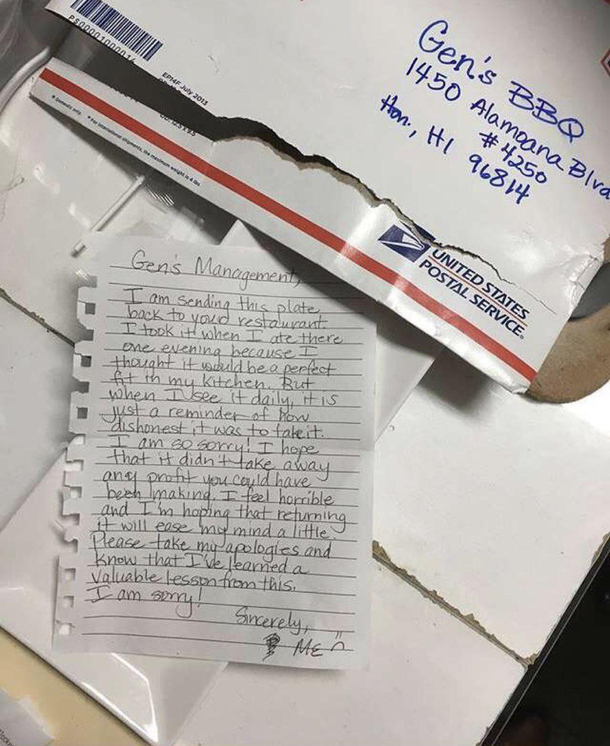 PS00001000014
EP14F July 2013
Gen's BBQ
1450 Alamoana Blvd
#4250
Hon., HI
96814
* Domestic only.
* For international shipments, the maximum weight is 4 lbs.
UNITED STATES
POSTAL SERVICE®
Gen's Management,
I am sending this plate
back to your restaurant.
I took it when I ate there
one evening because I
thought it would be a perfect
fit in my kitchen. But
when I see it daily, it is
just a reminder of how
dishonest it was to take it.
I am so sorry! I hope
that it didn't take away
any profit you could have
been making. I feel horrible
and I'm hoping that returning
it will ease my mind a little.
Please take my apologies and
know that I've learned a
valuable lesson from this.
I am sorry!
Sincerely,
ME